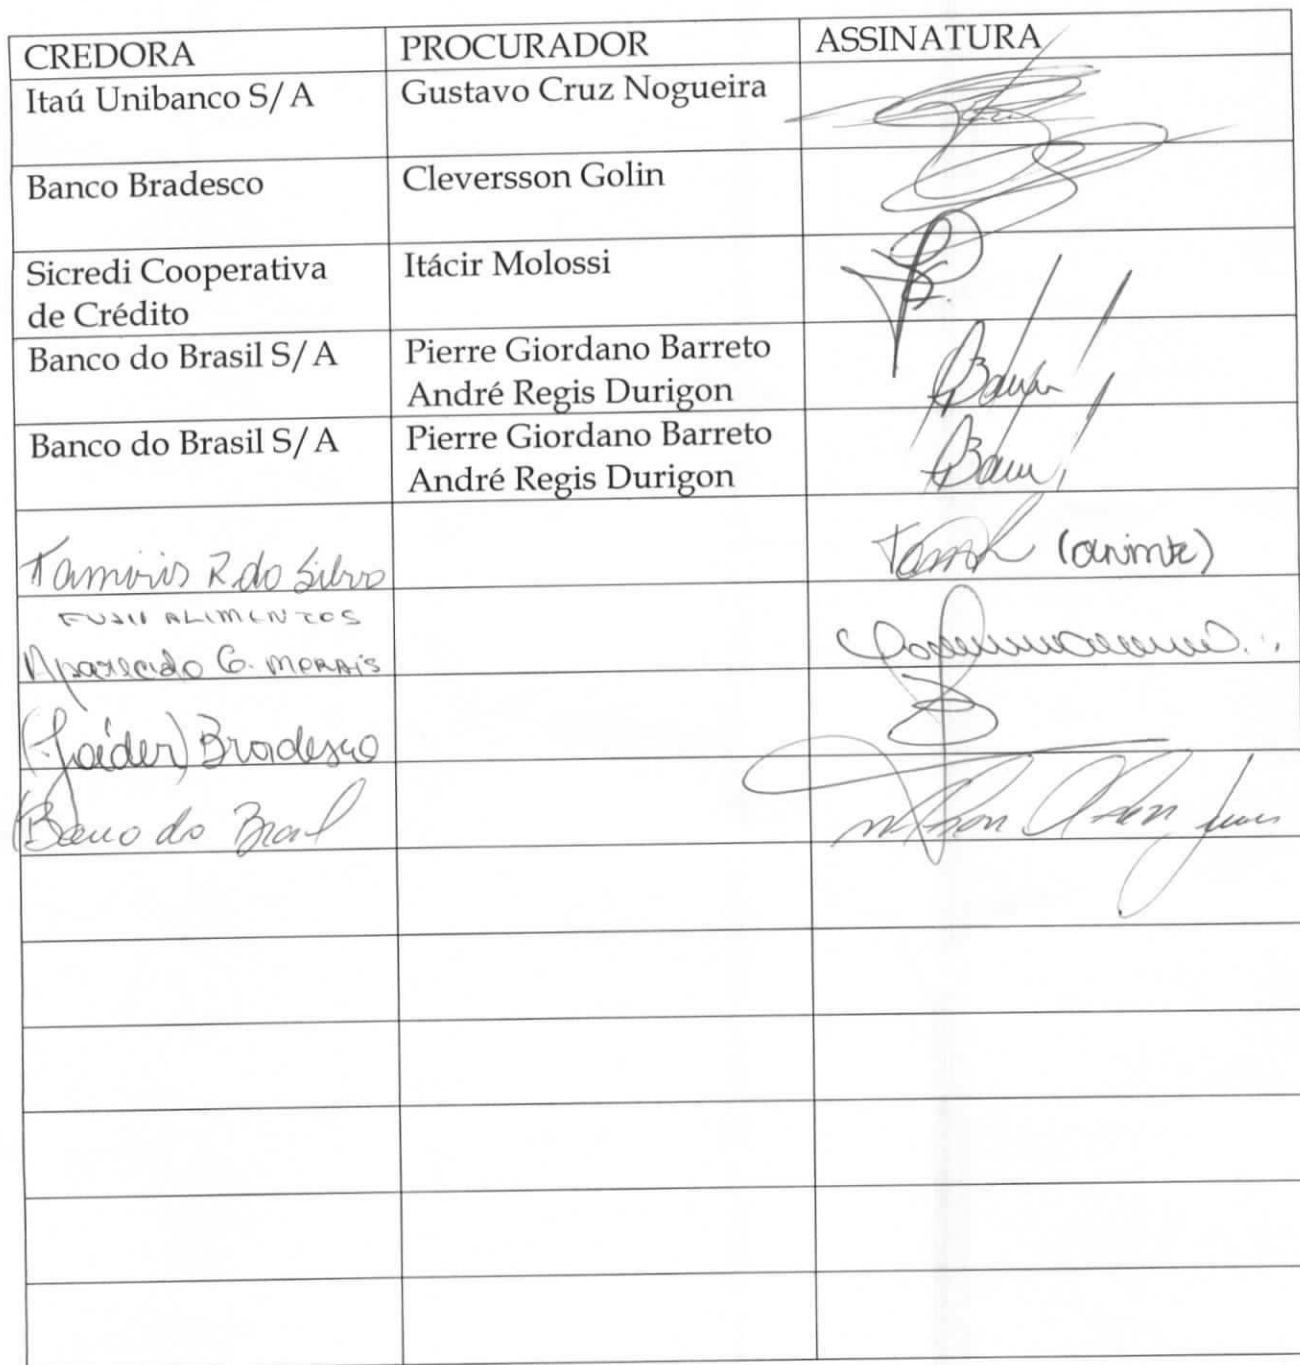 CREDORA PROCURADOR ASSINATURA
Itaú Unibanco S/A Gustavo Cruz Nogueira
Banco Bradesco Cleversson Golin
Sicredi Cooperativa Itácir Molossi
de Crédito
Banco do Brasil S/A Pierre Giordano Barreto
André Regis Durigon
Banco do Brasil S/A Pierre Giordano Barreto
André Regis Durigon
Tamiris R do Silva
ALIMENTOS
Aparecido G. MORAIS
(Jaíder) Bradesco
Banco do Brasil